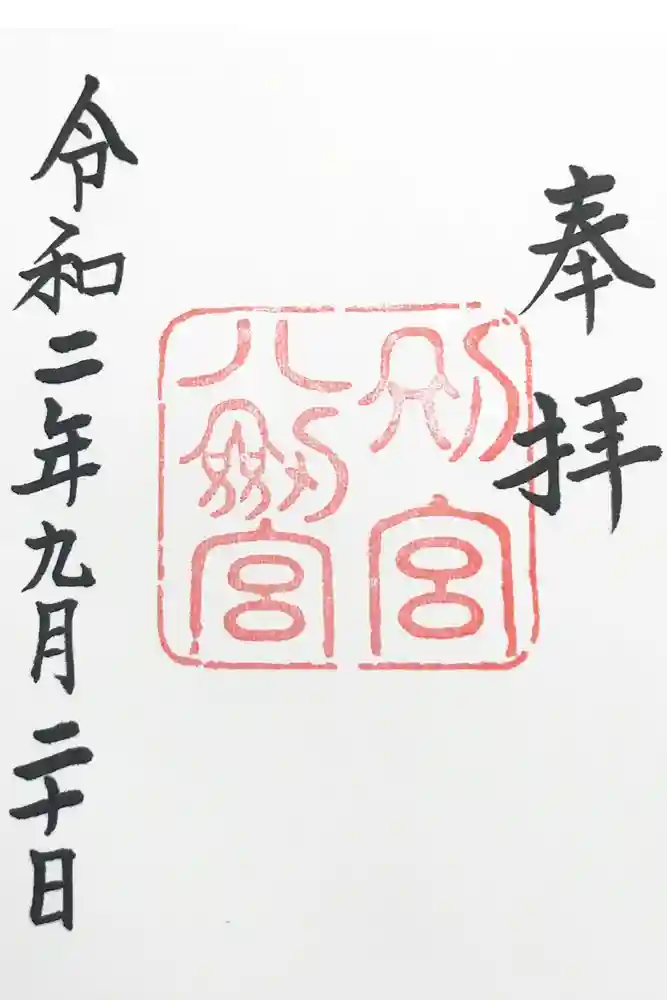 奉拝
別宮
八剱宮
令和二年九月二十日